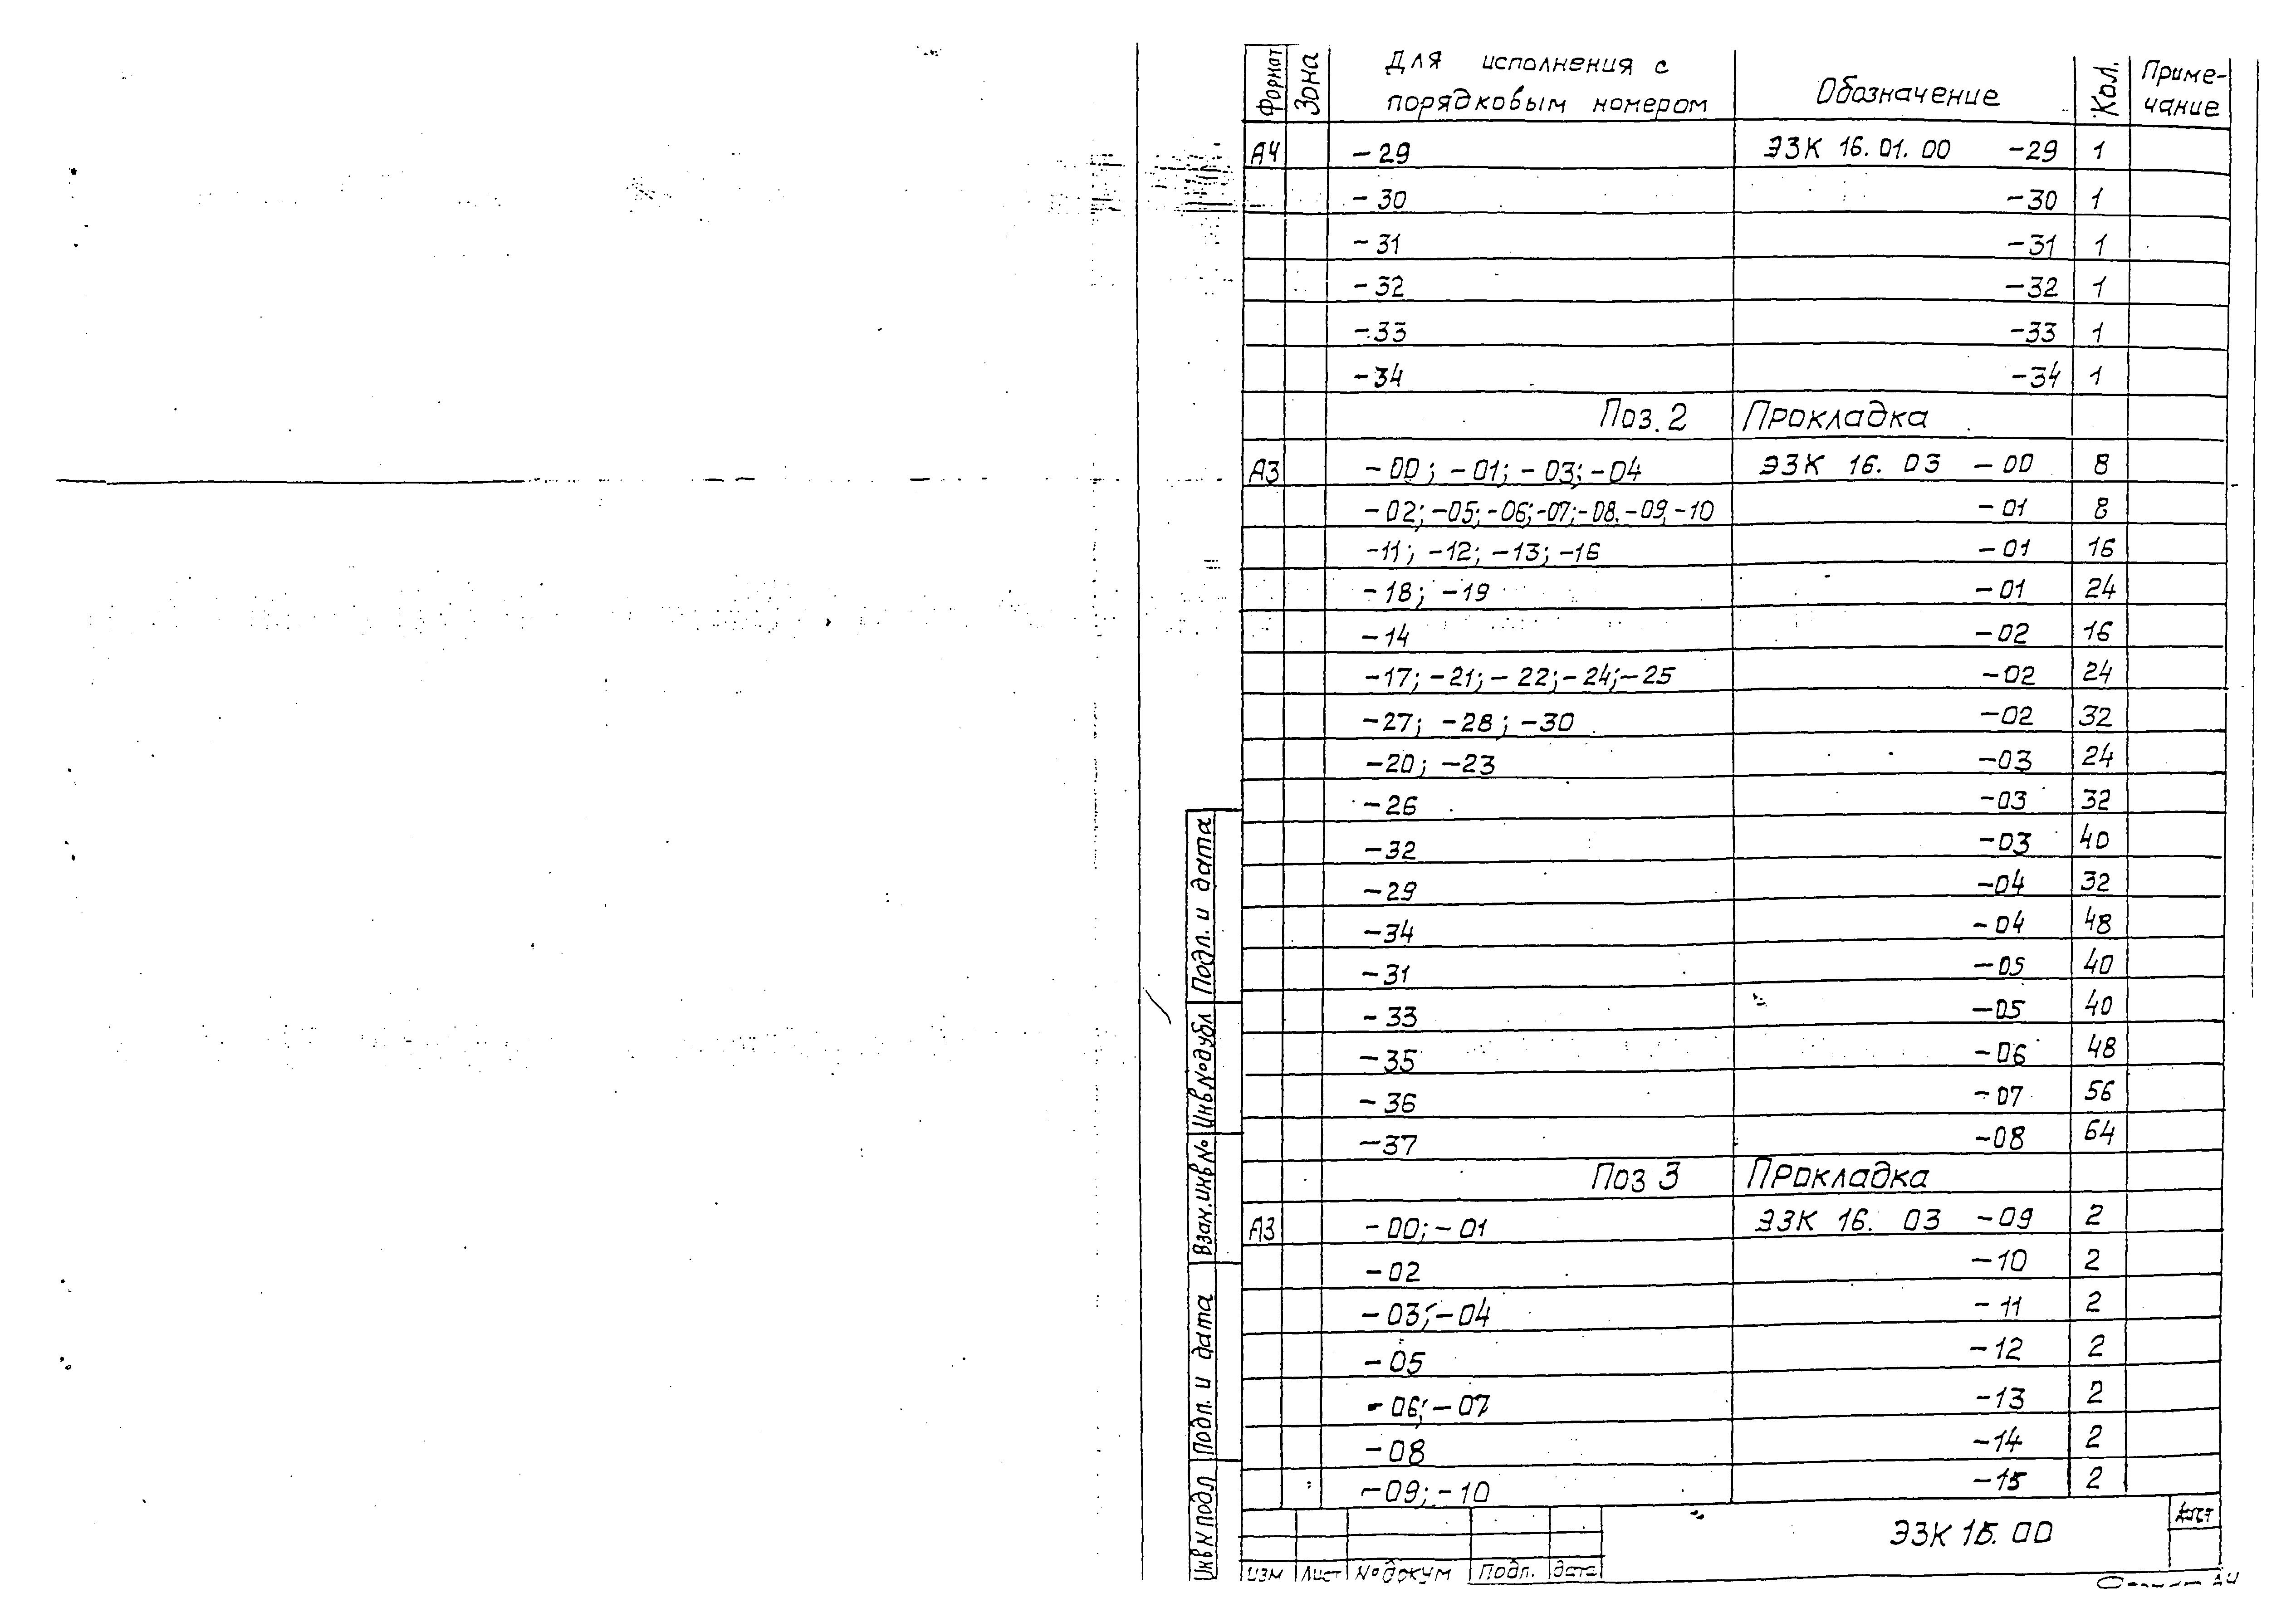 Формат Зона Для исполнения с порядковым номером Обозначение Кол. Приме-чание
А4 -29 ЭЗК 16.01.00 -29 1
-30 -30 1
-31 -31 1
-32 -32 1
-33 -33 1
-34 -34 1
Поз.2 Прокладка
А3 -00; -01; -03; -04 ЭЗК 16. 03 -00 8
-02; -05; -06; -07; -08. -09, -10 -01 8
-11; -12; -13; -16 -01 16
-18; -19 -01 24
-14 -02 16
-17; -21; -22; -24; -25 -02 24
-27; -28; -30 -02 32
-20; -23 -03 24
-26 -03 32
-32 -03 40
-29 -04 32
-34 -04 48
-31 -05 40
-33 -05 40
-35 -06 48
-36 -07 56
-37 -08 64
Поз 3 Прокладка
А3 -00; -01 ЭЗК 16. 03 -09 2
-02 -10 2
-03; -04 -11 2
-05 -12 2
-06; -07 -13 2
-08 -14 2
-09; -10 -15 2
Подп. и дата
Инв № дубл
Взам. инв №
Подп. и дата
Инв N подл
Изм Лист № докум Подп. Дата
ЭЗК 16.00
Лист